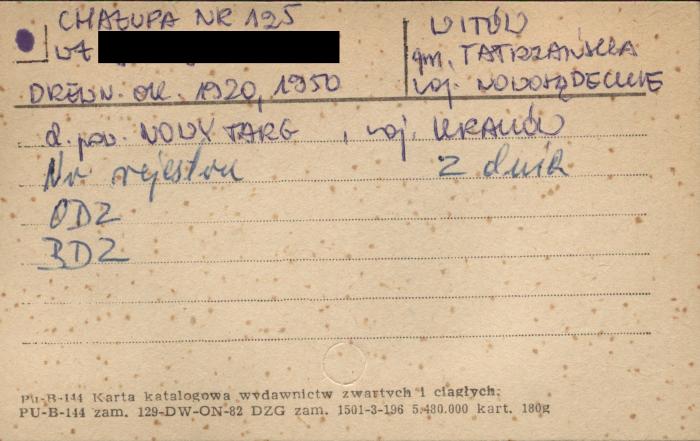 CHAŁUPA NR 125
WŁ
DREWN. OK. 1920, 1950
WITÓW
gm. TATRZAŃSKA
woj. NOWOSĄDECKIE
d. pow. NOWY TARG, woj. KRAKÓW
Nr rejestru z dnia
ODZ
BDZ
PU-B-144 Karta katalogowa wydawnictw zwartych i ciągłych:
PU-B-144 zam. 129-DW-ON-82 DZG zam. 1501-3-196 5.480.000 kart. 180g